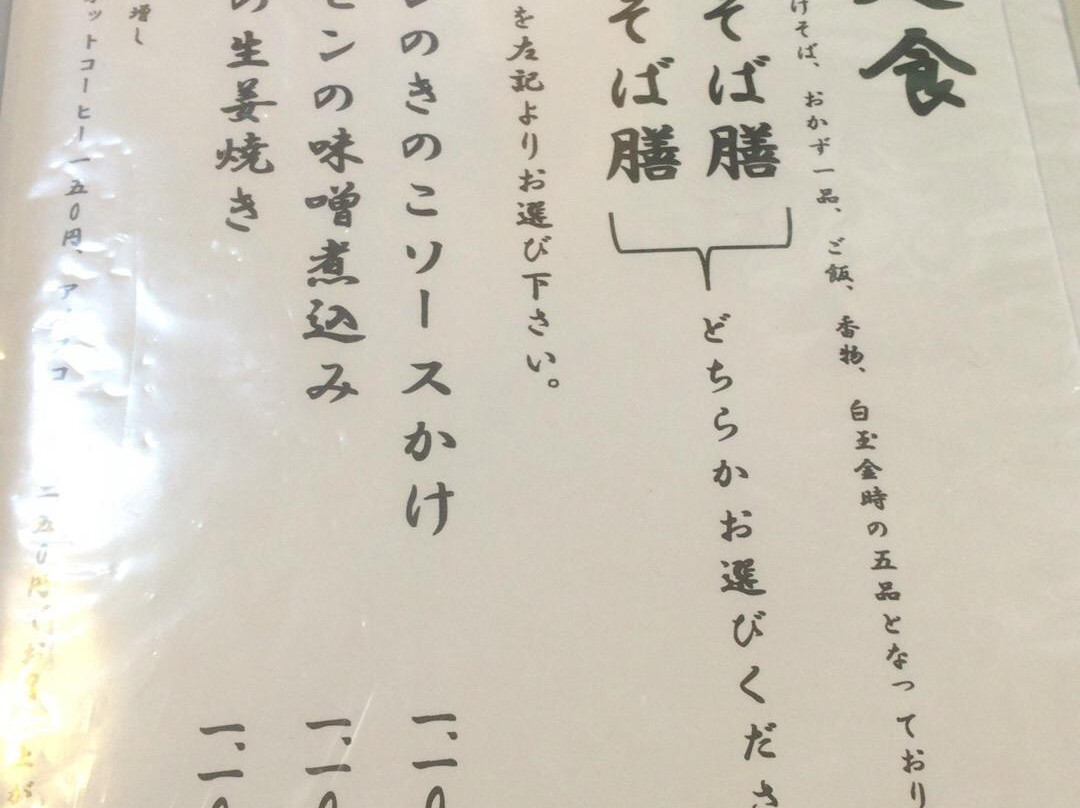 食
けそば、おかず一品、ご飯、香物、白玉金時の五品となっており
そば膳
そば膳
どちらかお選びくださ
を左記よりお選び下さい。
のきのこソースかけ 一、一0
ンの味噌煮込み 一、一0
の生姜焼き 一、一0
増し
ットコーヒー一五0円、ア
コ
二五0円
上が